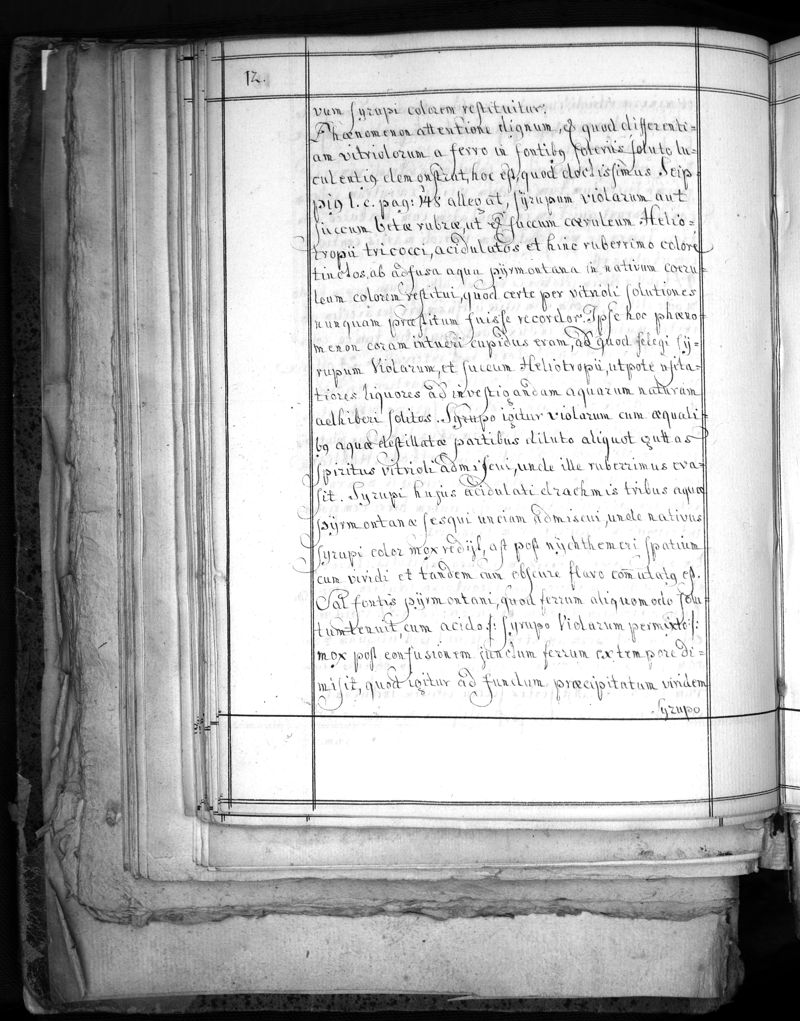 12.
vum syrupi colorem restituitur.
Phænomenon attentione dignum, & quod differenti=
am vitriolorum a ferro in fontibꝫ soluto lu=
culentiꝫ demonstrat, hoc est, quod doctissimus Seip-
piꝫ l. c. pag: 148 allegat, syrupum violarum aut
succum betæ rubræ, ut & succum cœruleum Helio=
tropii tricocci, acidulatos et hinc ruberrimo colore
tinctos, ab adfusa aqua pÿrmontana in nativum cœru=
leum colorem restitui, quod certe per vitrioli solutiones
nunquam præstitum fuisse recordor. Ipse hoc phæno=
menon coram intueri cupidus eram, ad quod selegi sÿ=
rupum Violarum, et succum Heliotropii, utpote usita=
tiores liquores ad investigandam aquarum naturam
adhiberi solitos. Syrupo igitur violarum cum æquali=
bꝫ aquæ destillatæ partibus diluto aliquot guttas
spiritus vitrioli admiscui, unde ille ruberrimus eva=
sit. Syrupi hujus acidulati drachmis tribus aquæ
pÿrmontanæ sesqui unciam admiscui, unde nativus
syrupi color mox redijt, ast post nÿchthemeri spatium
cum viridi et tandem cum obscure flavo com̄utatꝫ est.
Sal fontis pÿrmontani, quod ferrum aliquomodo solu
tum tenuit, cum acido /: syrupo Violarum permixto :/
mox post confusionem junctum ferrum extempore di=
misit, quod igitur ad fundum præcipitatum viridem
syrupo